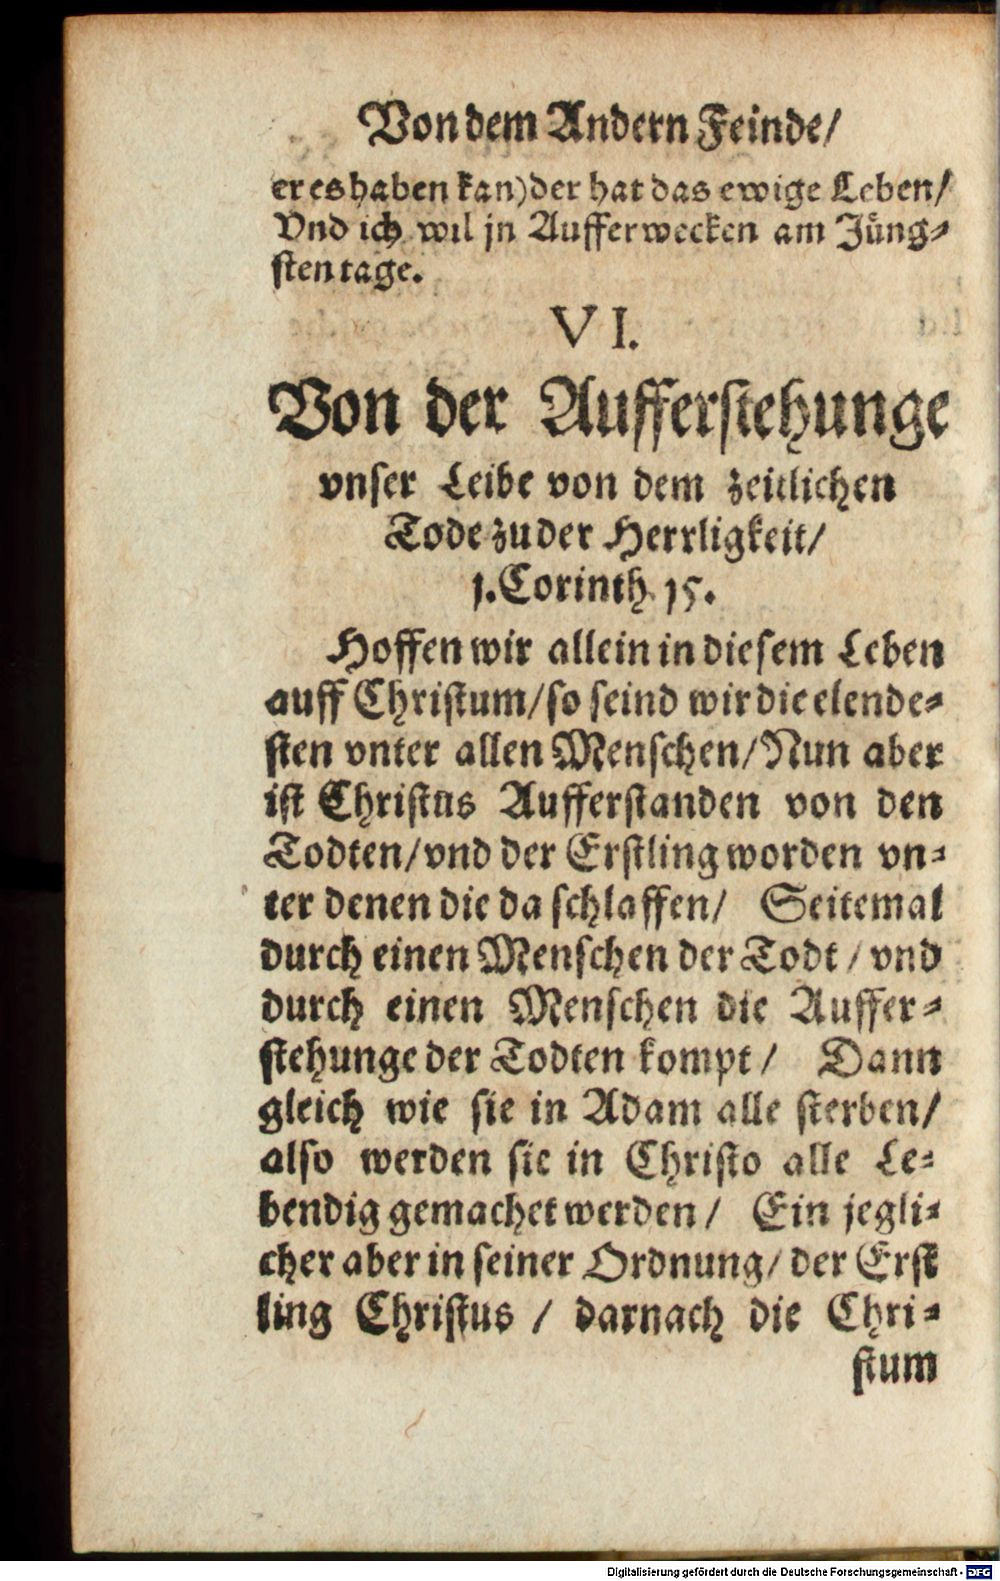 Von dem Andern Feinde/
er es haben kan) der hat das ewige Leben/
Vnd ich wil jn Aufferwecken am Jüng-
sten tage.
VI.
Von der Aufferstehunge
vnser Leibe von dem zeitlichen
Tode zu der Herrligkeit/
1. Corinth. 15.
Hoffen wir allein in diesem Leben
auff Christum/ so seind wir die elende-
sten vnter allen Menschen/ Nun aber
ist Christus Aufferstanden von den
Todten/ vnd der Erstling worden vn-
ter denen die da schlaffen/ Seitemal
durch einen Menschen der Todt / vnd
durch einen Menschen die Auffer-
stehunge der Todten kompt / Dann
gleich wie sie in Adam alle sterben/
also werden sie in Christo alle Le-
bendig gemachet werden / Ein jegli-
cher aber in seiner Ordnung/ der Erst
ling Christus / darnach die Chri-
stum
Digitalisierung gefördert durch die Deutsche Forschungsgemeinschaft - DFG